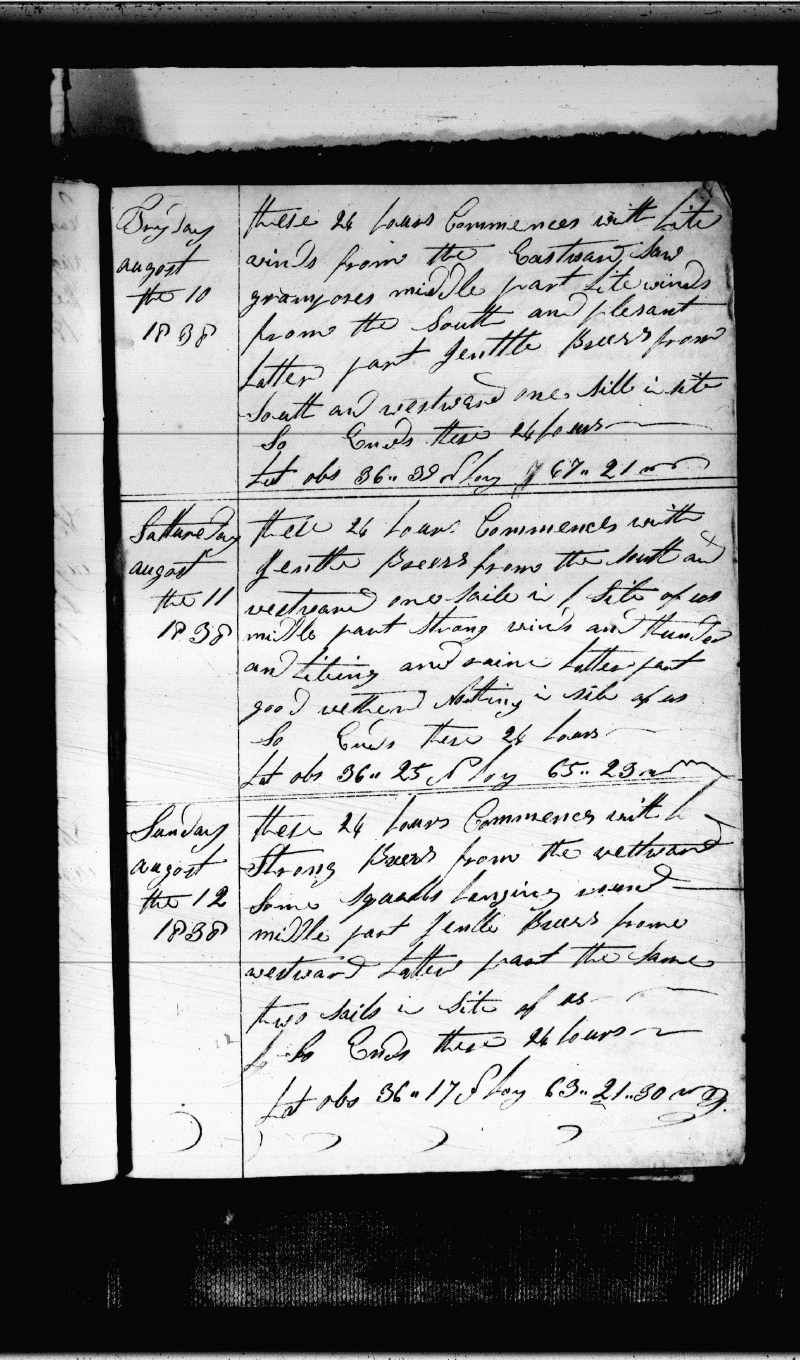 Fryday
august
the 10
1838
these 24 hours Commences with Lite
winds from the Eastward Saw
gramposes middle part Lite winds
from the South and plesant
Latter part gentlle Breess from
South and westward one sill in site
So Ends these 24 hours
Lat obs 36" 39 Long 67" 21
Satturday
august
the 11
1838
these 24 hours Commences with
gentle Breess from the south and
westward one saile in site of us
middle part strong winds and thunder
and liting and raine latter part
good wether Nothing in site of us
So Ends these 24 hours
Lat obs 36" 25 N Long 65" 23
Sunday
august
the 12
1838
these 24 hours Commences with
Strong Breess from the westward
Some squalls hanging round
middle part gentle Breess frome
westward Latter part the Same
two sails in Site of us
So Ends these 24 hours
Lat obs 36" 17 Long 63" 21" 30